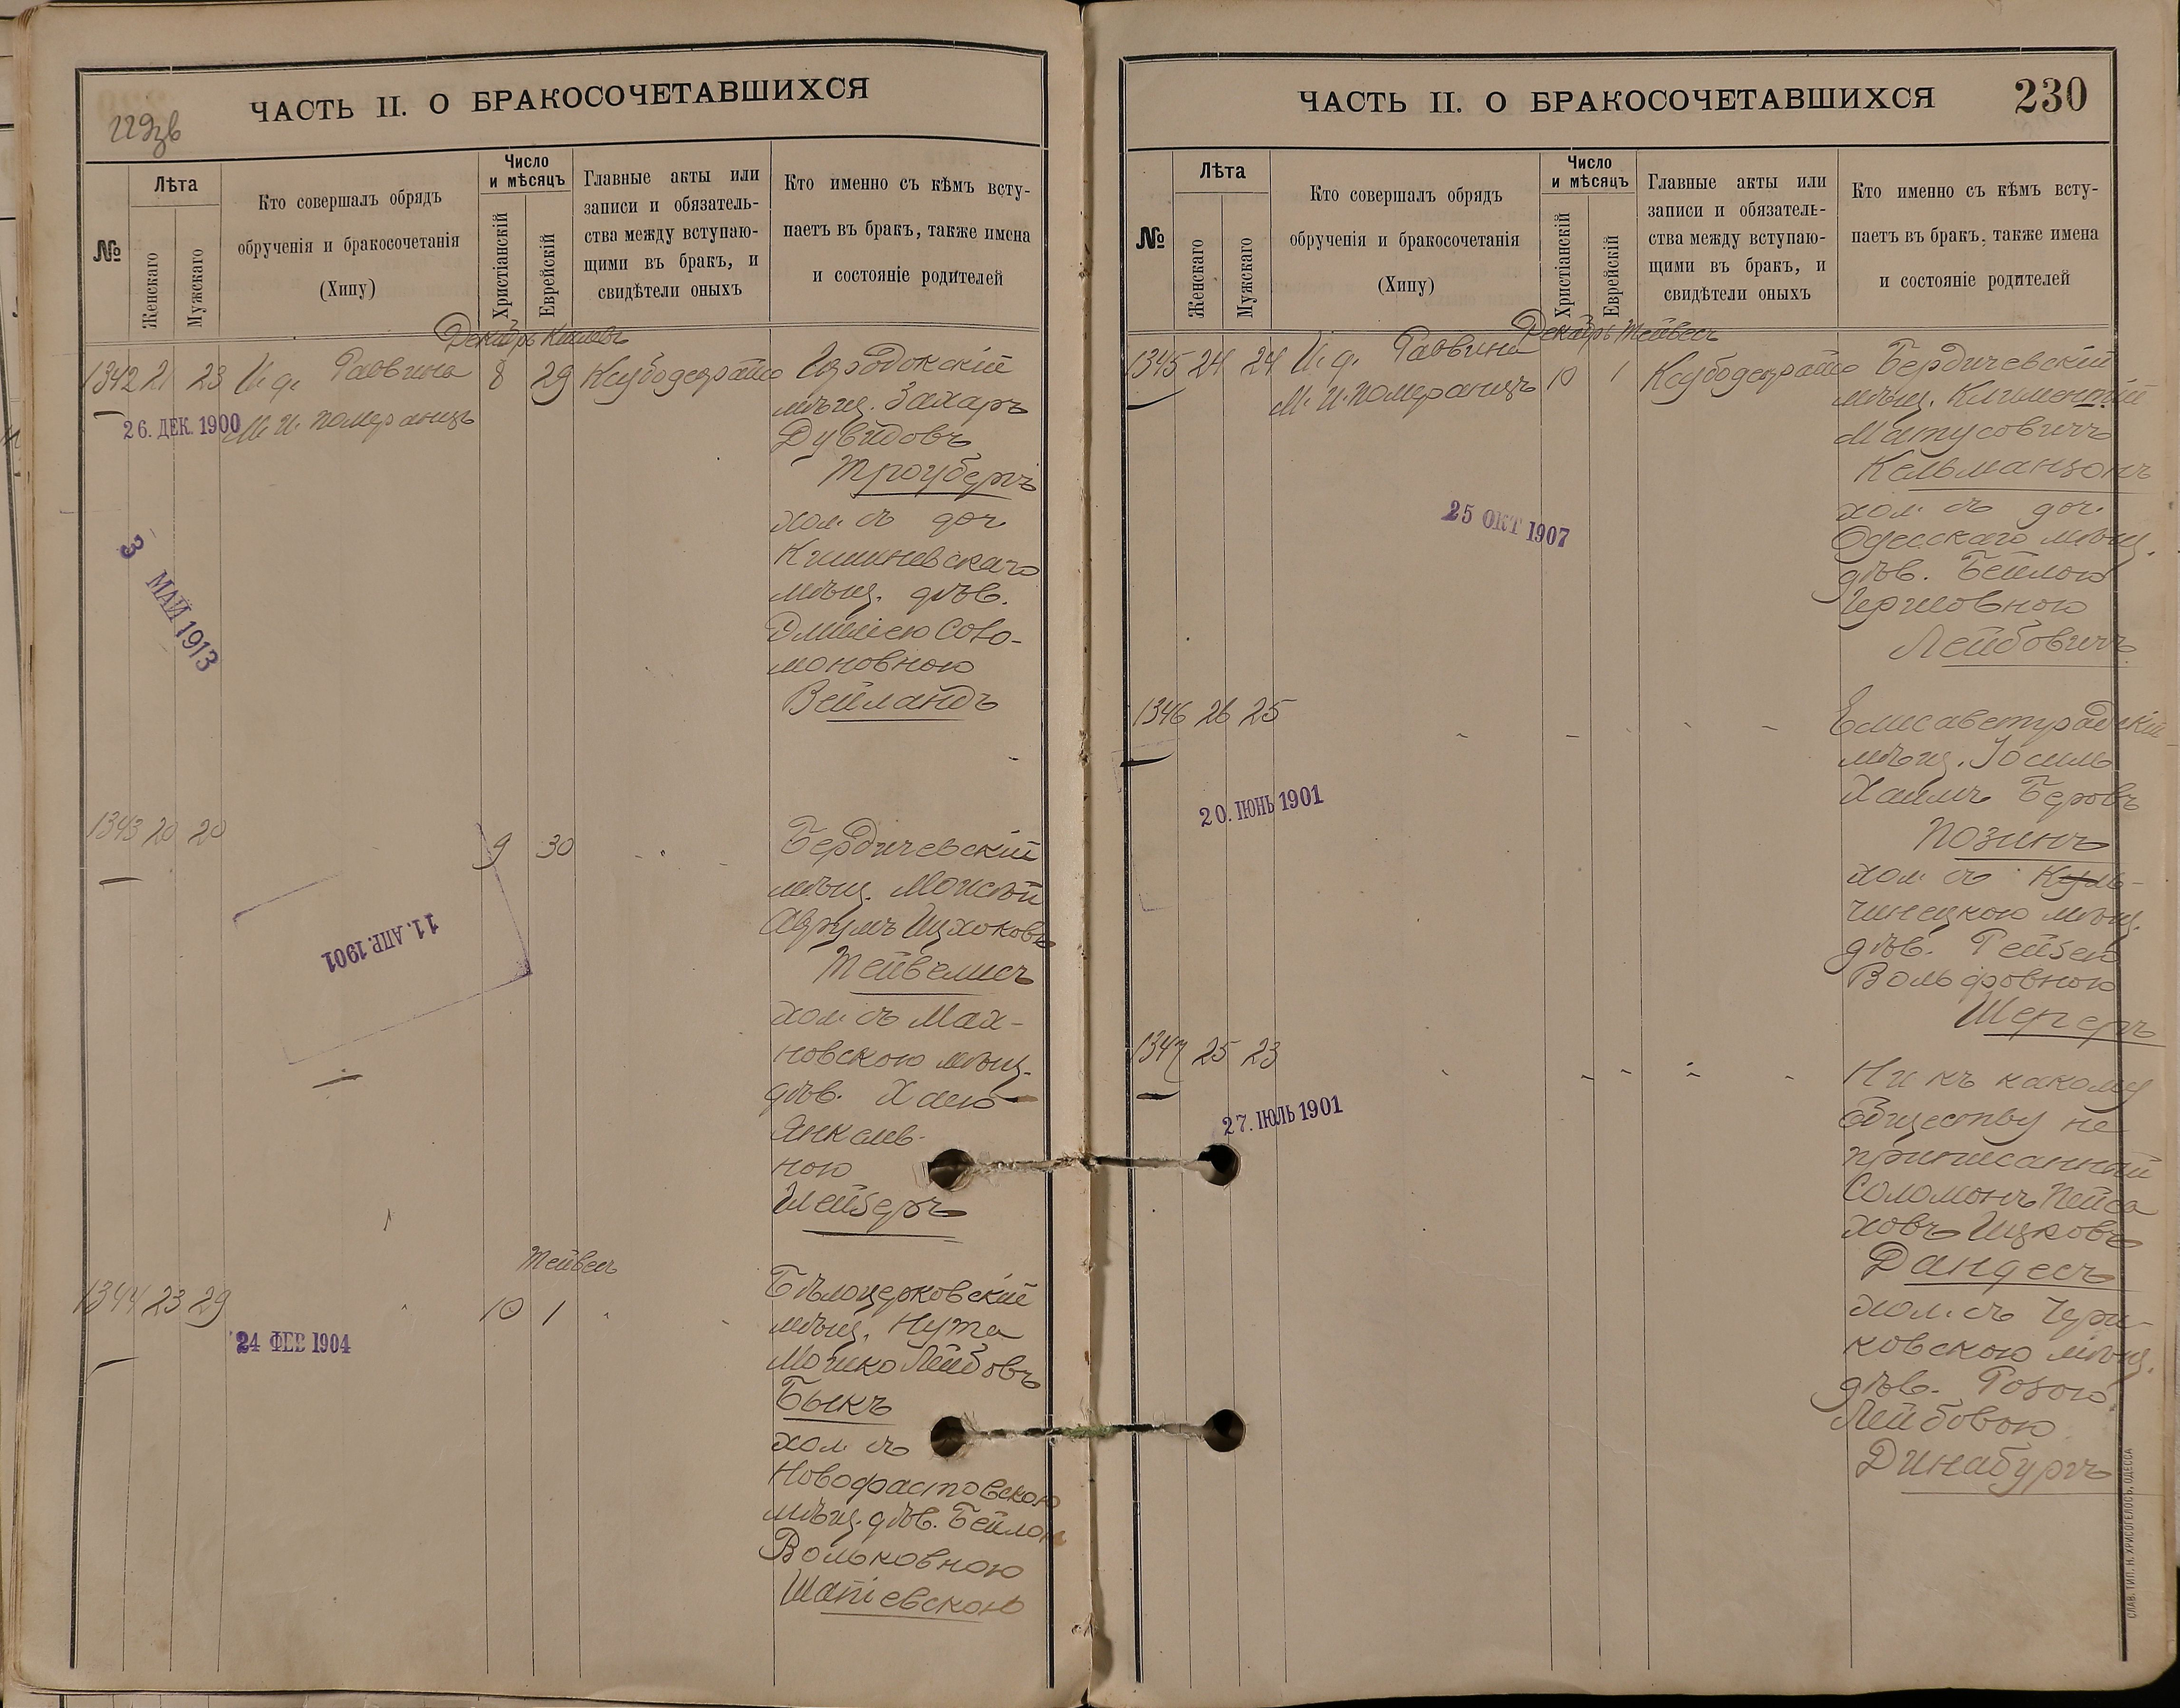 229зв
ЧАСТЬ II. О БРАКОСОЧЕТАВШИХСЯ
№
Лѣта
Женскаго
Мужскаго
Кто совершалъ обрядъ
обрученія и бракосочетанія
(Хипу)
Число
и мѣсяцъ
Христіанскій
Еврейскій
Главные акты или
записи и обязатель-
ства между вступаю-
щими въ бракъ, и
свидѣтели оныхъ
Кто именно съ кѣмъ всту-
паетъ въ бракъ, также имена
и состояніе родителей
Декабрь Кислевъ
1342 21 23 И. д. Раввина 8 29 Ксубодецрайсо
М. И. Померанцъ
26. ДЕК. 1900
3 МАЙ 1913
мѣщ. Захаръ
Дувидовъ
Троубергъ
хол. съ доч.
Кишиневскаго
мѣщ. дѣв.
Эмиліею Соло-
моновною
Вейландъ
1343 20 20 9 30
11. АПР. 1901
Бердичевскій
мѣщ. Моисей
Аврумъ Ицхоковъ
Тейвелисъ
хол. съ Мах-
новскою мѣщ.
дѣв. Хаею
Янкелев-
ною
Шейберъ
Тейвесъ
1344 23 29 10 1
24 ФЕВ 1904
Бѣлоцерковскій
мѣщ. Нута
Мошко Лейбовъ
Быкъ
хол. съ
Новофастовскою
мѣщ. дѣв. Бейлою
Вольковною
Шапіевскою
ЧАСТЬ II. О БРАКОСОЧЕТАВШИХСЯ
230
№
Лѣта
Женскаго
Мужскаго
Кто совершалъ обрядъ
обрученія и бракосочетанія
(Хипу)
Число
и мѣсяцъ
Христіанскій
Еврейскій
Главные акты или
записи и обязатель-
ства между вступаю-
щими въ бракъ, и
свидѣтели оныхъ
Кто именно съ кѣмъ всту-
паетъ въ бракъ, также имена
и состояніе родителей
Декабрь Тейвесъ
1345 24 24 И. д. Раввина 10 1 Ксубодецрайсо
М. И. Померанцъ
25 ОКТ 1907
Бердичевскій
мѣщ. Климентій
Матусовичъ
Кельманзонъ
хол. съ доч.
Одесскаго мѣщ.
дѣв. Бейлою
Гершовною
Лейбовичъ
1346 26 25
20. ІЮНЬ 1901
Елисаветградскій
мѣщ. Іосиль
Хаимъ Беровъ
Позинъ
хол. съ Куль-
чинецкою мѣщ.
дѣв. Рейзею
Вольфовною
Шереръ
1347 25 23
27. ІЮЛЬ 1901
Ни къ какому
Обществу не
приписанный
Соломонъ Пейса
ховъ Ицковъ
Дандесъ
хол. съ Чери-
ковскою мѣщ.
дѣв. Розою
Лейбовою
Динабургъ
СЛАВ. ТИП. Н. ХРИСОГЕЛОСЪ, ОДЕССА